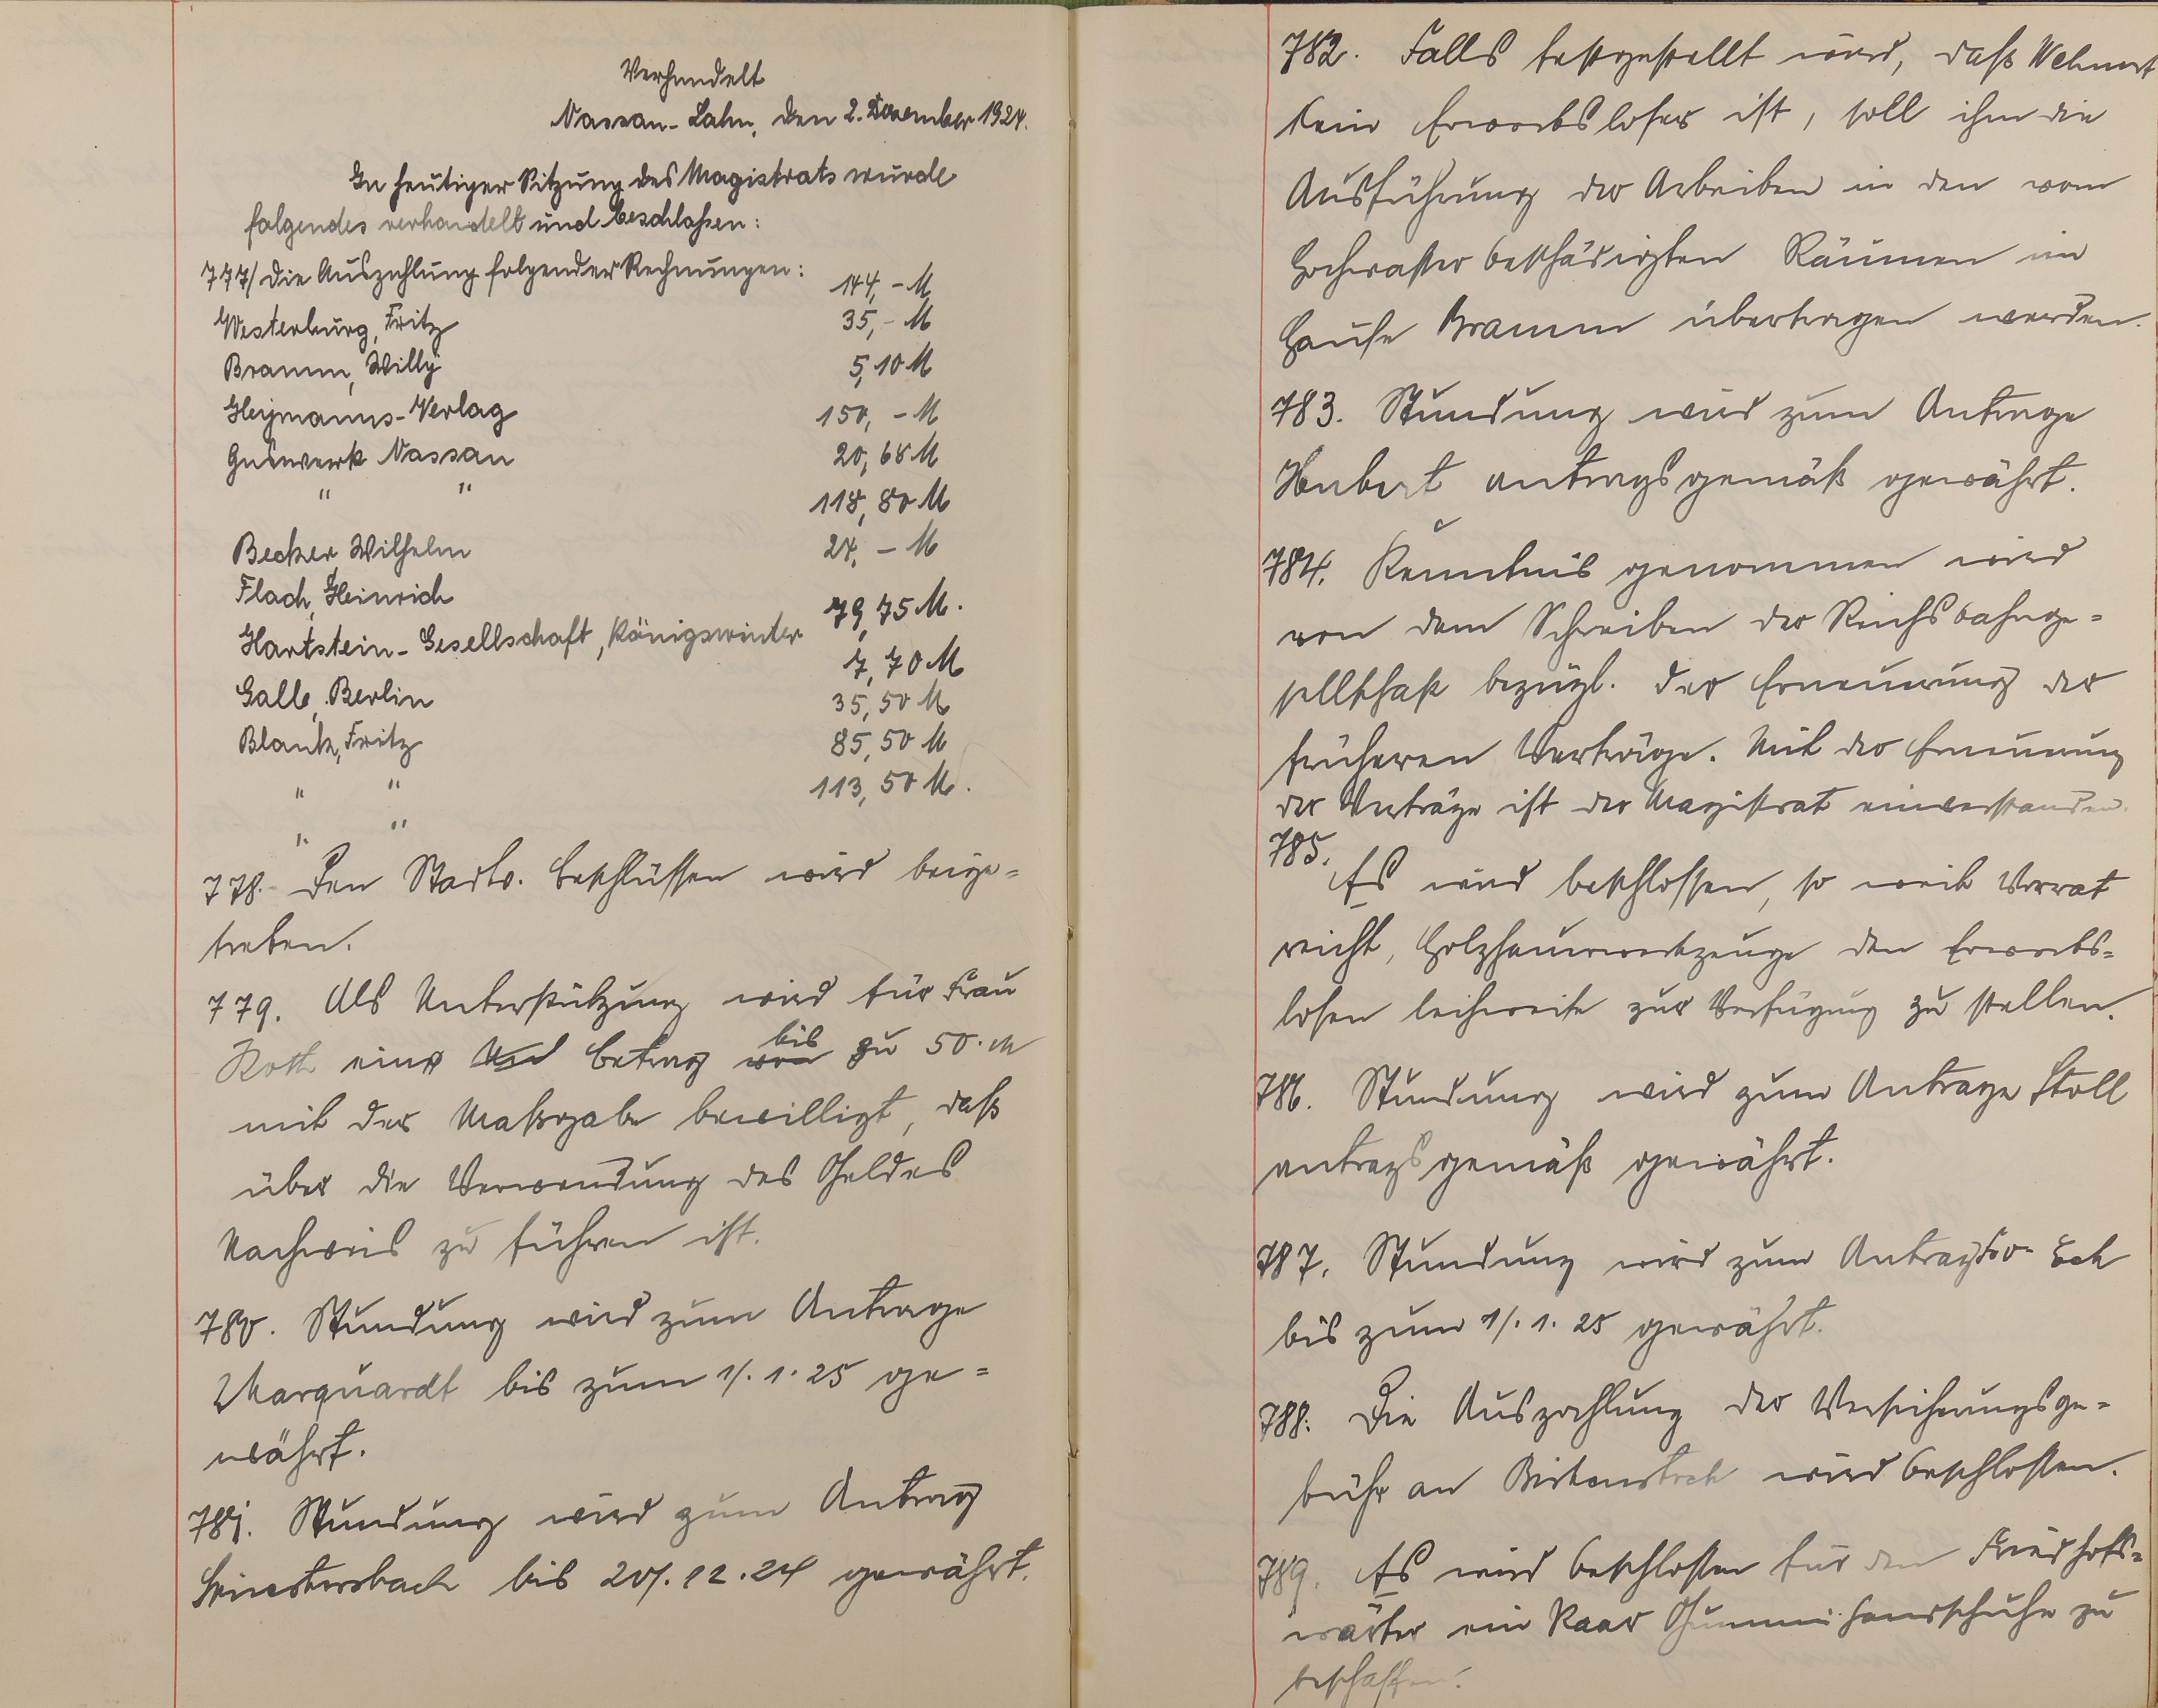 Verhandelt
Nassau-Lahn, den 2. Dezember 1924.
In heutiger Sitzung des Magistrats wurde
folgendes verhandelt und beschlossen:
777/ Die Auszahlung folgender Rechnungen:
144,- M
Westerburg, Fritz 35,- M
Bramm, Willy 5,10 M
Heymanns-Verlag 150,- M
Gaswerk Nassau 20,68 M
" " 118,80 M
Becker, Wilhelm 24,- M
Flach, Heinrich 79,75 M.
Hartstein-Gesellschaft, Königswinter 7,70 M
Galle, Berlin 35,50 M
Blank, Fritz 85,50 M
" " 113,50 M.
" "
778. Den Stadtv. Beschlüssen wird beige=
treten.
779. Als Unterstützung wird für Frau
Roth eine Betrag von bis zu 50. M
mit der Maßgabe bewilligt, daß
über die Verwendung des Geldes
Nachweis zu führen ist.
780. Stundung wird zum Antrage
Marquardt bis zum 1/. 1. 25 ge=
währt.
781. Stundung wird zum Antrag
bis 20/. 12. 24 gewährt.
782. Falls festgestellt wird, daß Wehnert
kein Erwerbsloser ist, soll ihm die
Ausführung der Arbeiten in den vom
Hochwasser beschädigten Räumen im
Hause Bramm übertragen werden.
783. Stundung wird zum Antrage
Hubert antragsgemäß gewährt.
784. Kenntnis genommen wird
von dem Schreiben der Reichsbahnge=
sellschaft bezügl. der Erneuerung der
früheren Verträge. Mit der Erneuerung
der Verträge ist der Magistrat einverstanden.
785.
Es wird beschlossen, so weit Vorrat
reicht, Holzhauerwerkzeuge den Erwerbs=
losen leihweise zur Verfügung zu stellen.
786. Stundung wird zum Antrage Stoll
antragsgemäß gewährt.
787. Stundung wird zum Antrag Eck
bis zum 1/. 1. 25 gewährt.
788. Die Auszahlung der Versicherungsge=
bühr an Birkenstock wird beschlossen.
789. Es wird beschlossen für den Friedhofs=
wärter ein Paar Gummihandschuhe zu
beschaffen.